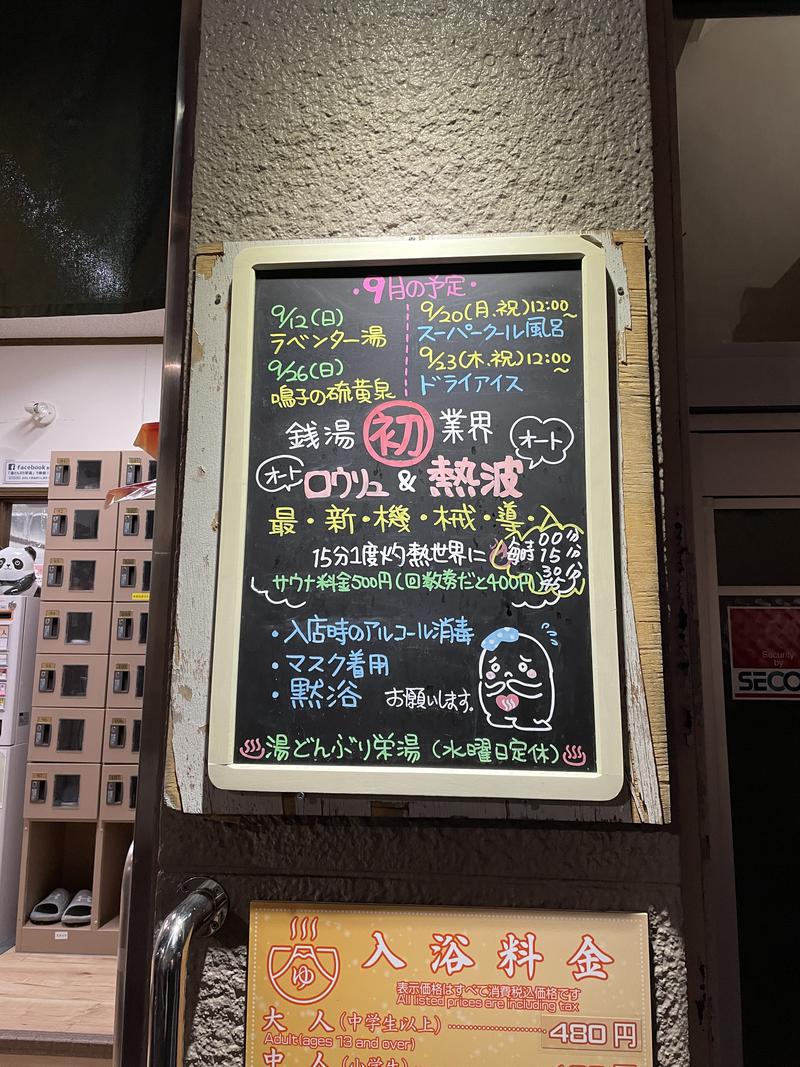 ・9月の予定・
9/12(日)
ラベンター湯
9/26(日)
鳴子の硫黄泉
9/20(月.祝)12:00~
スーパークール風呂
9/23(木.祝)12:00~
ドライアイス
銭湯 初 業界
オート
オート
ロウリュ & 熱波
最・新・機・械・導・入
15分1度灼熱世界に
毎時
00分
15分
30分
45分
サウナ料金500円(回数券だと400円)
・入店時のアルコール消毒
・マスク着用
・黙浴
お願いします。
湯どんぶり栄湯 (水曜日定休)
facebook
ゆ
入浴料金
表示価格はすべて消費税込価格です
All listed prices are including tax
大人(中学生以上)
480円
Adult(ages 13 and over)
中人(小学生)
Security
by
SECO